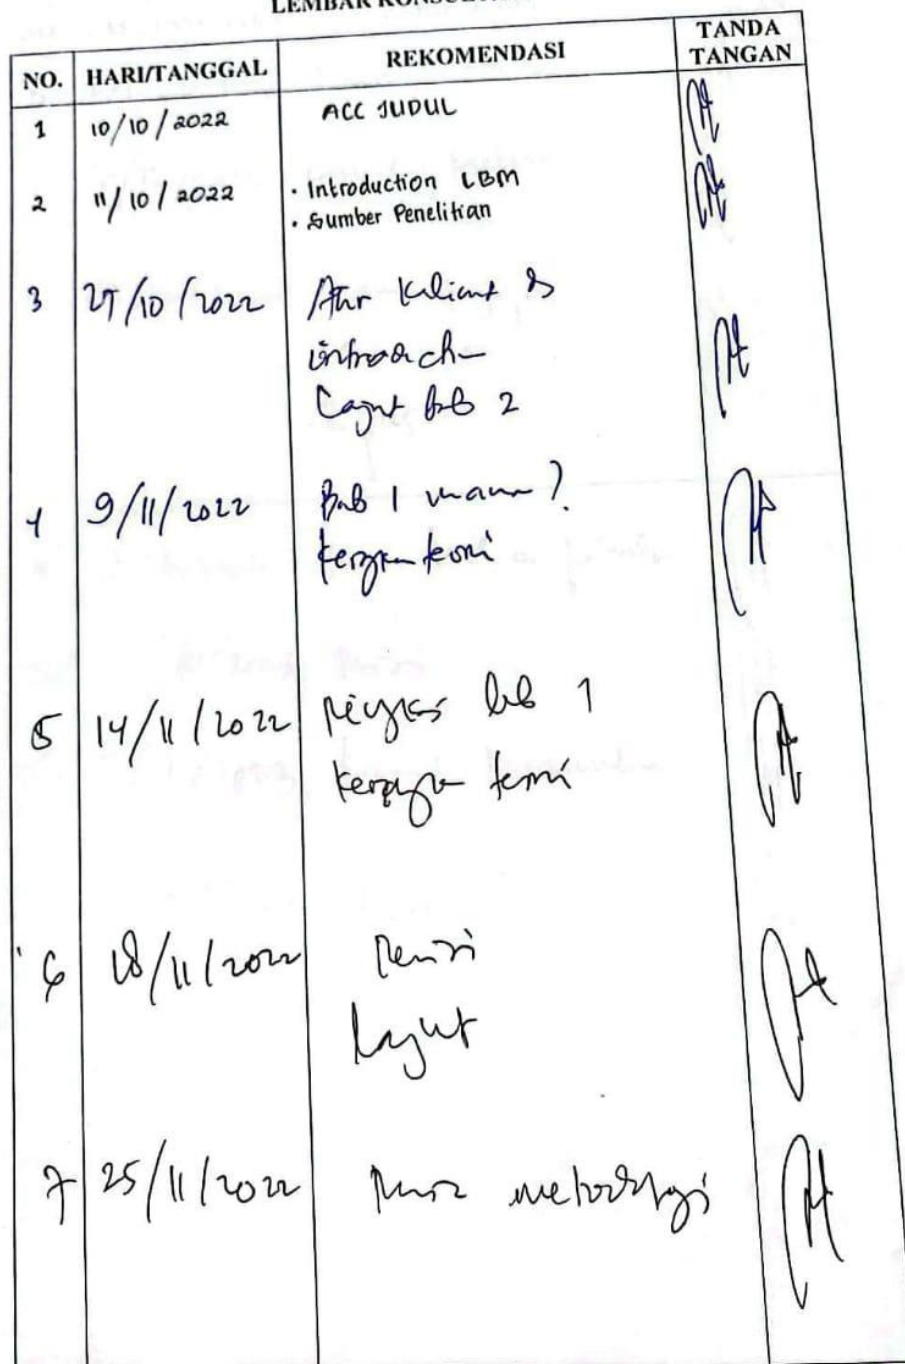 NO. HARI/TANGGAL REKOMENDASI TANDA TANGAN
1 10/10/2022 ACC JUDUL
2 11/10/2022 • Introduction LBM
• Sumber Penelitian
3 27/10/2022 Atur
Lanjut bab 2
4 9/11/2022 Bab 1 mana?
kerangka teori
5 14/11/2022 Ringkas bab 1
kerangka teori
6 18/11/2022 Revisi
Lanjut
7 25/11/2022 metodologi